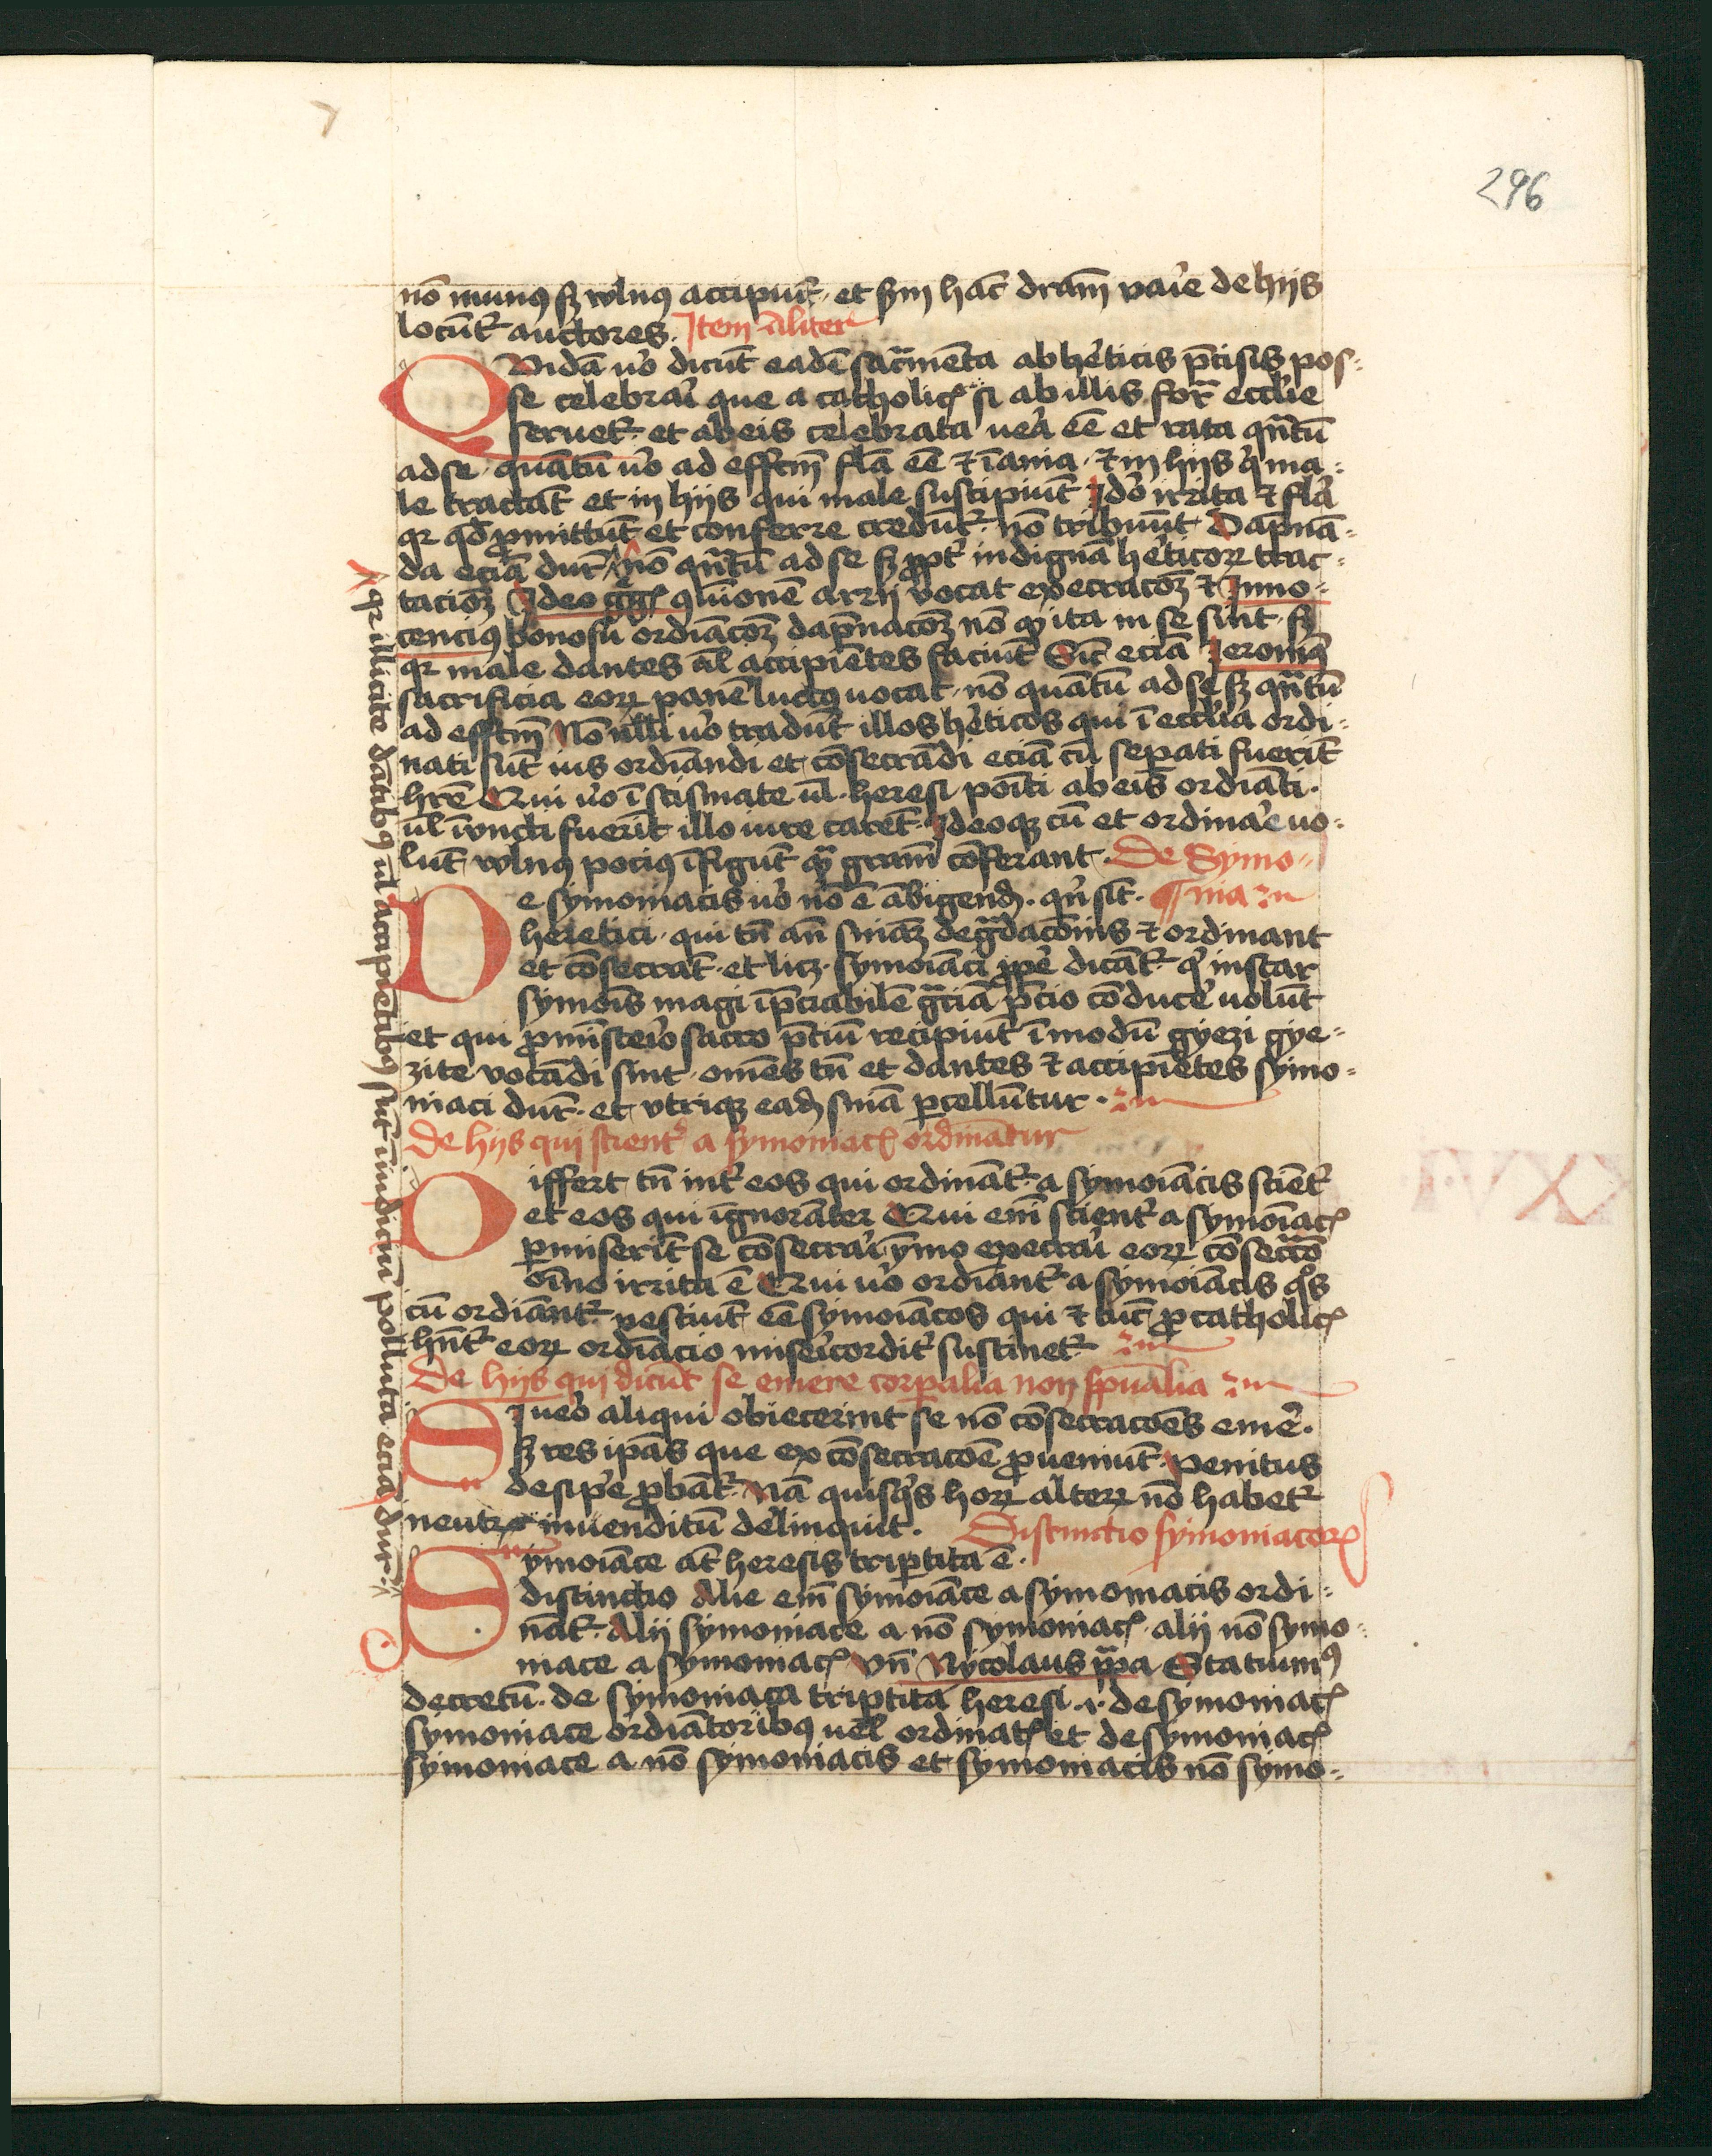 296
nō munꝰ sꝫ wlnꝰ accipiūt. et scdm hāc dr̄am vaīe de hijs
locūt᷑ auctores. Item al̄iter
Quidā v̓o dicūt eadē sac̄menta ab her̄ticis p̄cisis pos-
se celebrar̄i que a catholicꝭ si ab illis forma eccl̄ie
seruet᷑. et ab eis celebrata uer̄a eē et rata qn̄tū
ad se. quātū v̓o ad effc̄m fl̄a eē ⁊ īania. ⁊ in hijs qi ma-
le tractāt et in hijs qui male suscipiūt Ideo irrita ⁊ fl̄a
qr qd̄ ꝓmittūt et conferre credūt᷑. nō tribuūt. Dapnā-
da eciā dn̄r nō qn̄tū ad se sꝫ ꝓpt̓ indignā her̄ticoꝝ trac-
tacioꝫ Ideo gg̓ꝭ ꝯmunionē arrij vocat execracōꝫ ⁊ Inno-
cenciꝰ bonosii ordīacōꝫ dapnacōꝫ nō qꝫ ita in se sint. sꝫ
qr male dantes ul̄ accipiētes faciūt Sic eciā Jeronimꝰ
sacrificia eoꝝ panē luctꝰ uocat. nō quātū ad se sꝫ qn̄tū
ad effc̄m Nōnulli v̓o tradūt illos her̄ticos qui ī eccl̄ia ordi-
nati sūt ius ordīandi et cōsecrādi eciā cū separati fuerīt
hr̄e Qui v̓o ī scismate ul̄. heresi poīti ab eis ordīati.
ul̄ īvncti fuerīt illo iure carēt. Ideoqꝫ cū et ordinar̄e uo-
lūt wlnꝰ pociꝰ īfigūt qꝫ grām cōferant. De Symo-
nia
De symoniacis v̓o nō ē ābigend̄. qn̄ sīt.
heretici. qui tn̄ an̄ sniāꝫ degradacōnis ⁊ ordinant
et cōsecrāt. et licꝫ. symoīaci ꝓpe dicāt᷑. qi instar
symōis magi īpciabilē gr̄ciā p̄cio cōducer̄e uolūt
et qui ꝓ ministerio sacro p̄ciū recipiūt ī modū gyezi gye-
zite vocādi sint. omēs tn̄ et dantes ⁊ accipiētes symo-
niaci dn̄r. et vtriqꝫ ead̄ snīa percellūntur.
De hijs qui scient̓ a symoniacꝭ ordinātur
Differt tn̄ int̓ eos qui ordināt᷑. a symoīacis sciēt̓
et eos qui īgnorāter Qui enī scient̓ a symoīacꝭ
permiserīt se cōsecrar̄i ymo execrar̄i eoꝝ cōsecr̄cō
oīno irrita ē Qui v̓o ordīant᷑ a symoīacis qͦs
cū ordīant᷑. nesciūt eē symoīacos qui ⁊ tūc ꝓ catholicꝭ
hn̄t᷑ eoꝝ ordīacio misericordit̓ sustinet᷑
De hijs qui dicūt se emere corporalia non spūalia
Si uer̄o aliqui obiecerint se nō cōsecracōes emer̄e.
sꝫ res ipās que ex cōsecracōe ꝓueniūt. Penitus
desiper̄e ꝓbāt᷑. Nā quisqīs hoꝝ alterꝝ nō habet᷑
neutrꝝ inuenditū delinquit. Distinctio symoniacorꝝ
Symoīace at̄ heresis tripertita ē.
distinctio Alie enī symoīace a symoniacis ordi-
nāt᷑. Alij symoniace a nō symoniacꝭ. alij nō symo-
niace a symoniacꝭ Vn̄ Nycolaus p̄pa Statuimꝰ
decretū. de symoniaca tripertita heresi. i. de symoniacꝭ
symoniace ordīatoribꝰ uel ordinatꝭ et de symoniacꝭ
symoniace a nō symoniacis et symoniacis nō symo-
qr illicite dātibꝰ ul̄ accipiētibꝰ sūt in iudiciū polluta eciā dn̄r